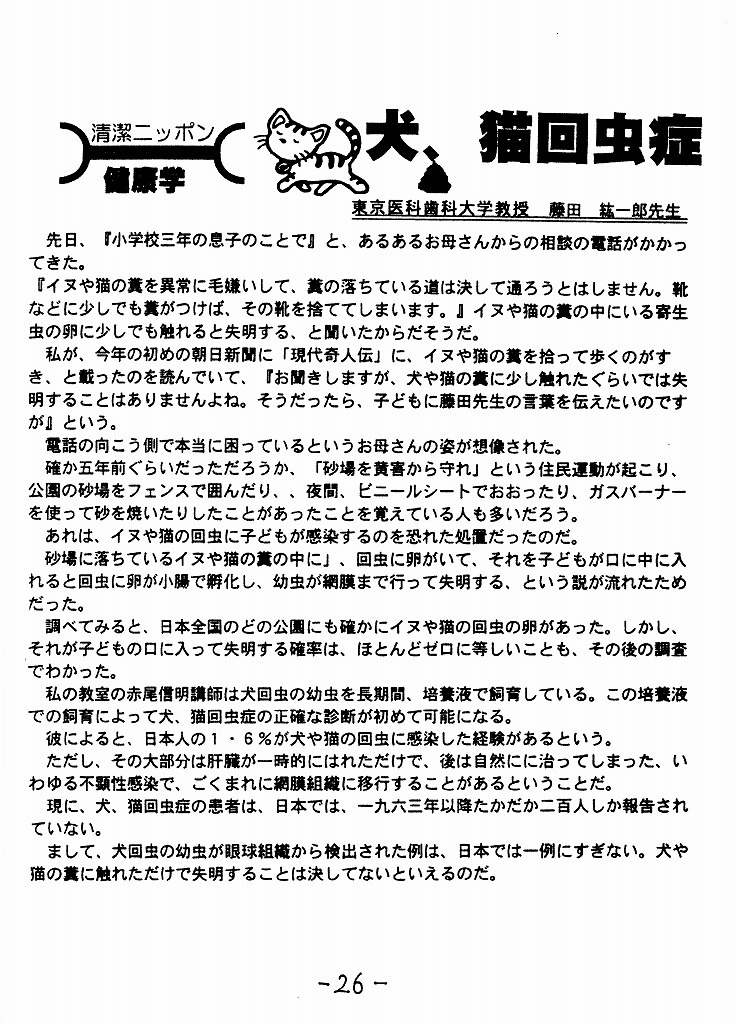 清潔ニッポン
健康学
犬、猫回虫症
東京医科歯科大学教授 藤田 紘一郎先生
先日、『小学校三年の息子のことで』と、あるあるお母さんからの相談の電話がかかっ
てきた。
『イヌや猫の糞を異常に毛嫌いして、糞の落ちている道は決して通ろうとはしません。靴
などに少しでも糞がつけば、その靴を捨ててしまいます。』イヌや猫の糞の中にいる寄生
虫の卵に少しでも触れると失明する、と聞いたからだそうだ。
私が、今年の初めの朝日新聞に「現代奇人伝」に、イヌや猫の糞を拾って歩くのがす
き、と載ったのを読んでいて、『お聞きしますが、犬や猫の糞に少し触れたぐらいでは失
明することはありませんよね。そうだったら、子どもに藤田先生の言葉を伝えたいのです
が』という。
電話の向こう側で本当に困っているというお母さんの姿が想像された。
確か五年前ぐらいだっただろうか、「砂場を糞害から守れ」という住民運動が起こり、
公園の砂場をフェンスで囲んだり、、夜間、ビニールシートでおおったり、ガスバーナー
を使って砂を焼いたりしたことがあったことを覚えている人も多いだろう。
あれは、イヌや猫の回虫に子どもが感染するのを恐れた処置だったのだ。
砂場に落ちているイヌや猫の糞の中に」、回虫に卵がいて、それを子どもが口に中に入
れると回虫に卵が小腸で孵化し、幼虫が網膜まで行って失明する、という説が流れたため
だった。
調べてみると、日本全国のどの公園にも確かにイヌや猫の回虫の卵があった。しかし、
それが子どもの口に入って失明する確率は、ほとんどゼロに等しいことも、その後の調査
でわかった。
私の教室の赤尾信明講師は犬回虫の幼虫を長期間、培養液で飼育している。この培養液
での飼育によって犬、猫回虫症の正確な診断が初めて可能になる。
彼によると、日本人の1・6%が犬や猫の回虫に感染した経験があるという。
ただし、その大部分は肝臓が一時的にはれただけで、後は自然にに治ってしまった、い
わゆる不顕性感染で、ごくまれに網膜組織に移行することがあるということだ。
現に、犬、猫回虫症の患者は、日本では、一九六三年以降たかだか二百人しか報告され
ていない。
まして、犬回虫の幼虫が眼球組織から検出された例は、日本では一例にすぎない。犬や
猫の糞に触れただけで失明することは決してないといえるのだ。
-26-